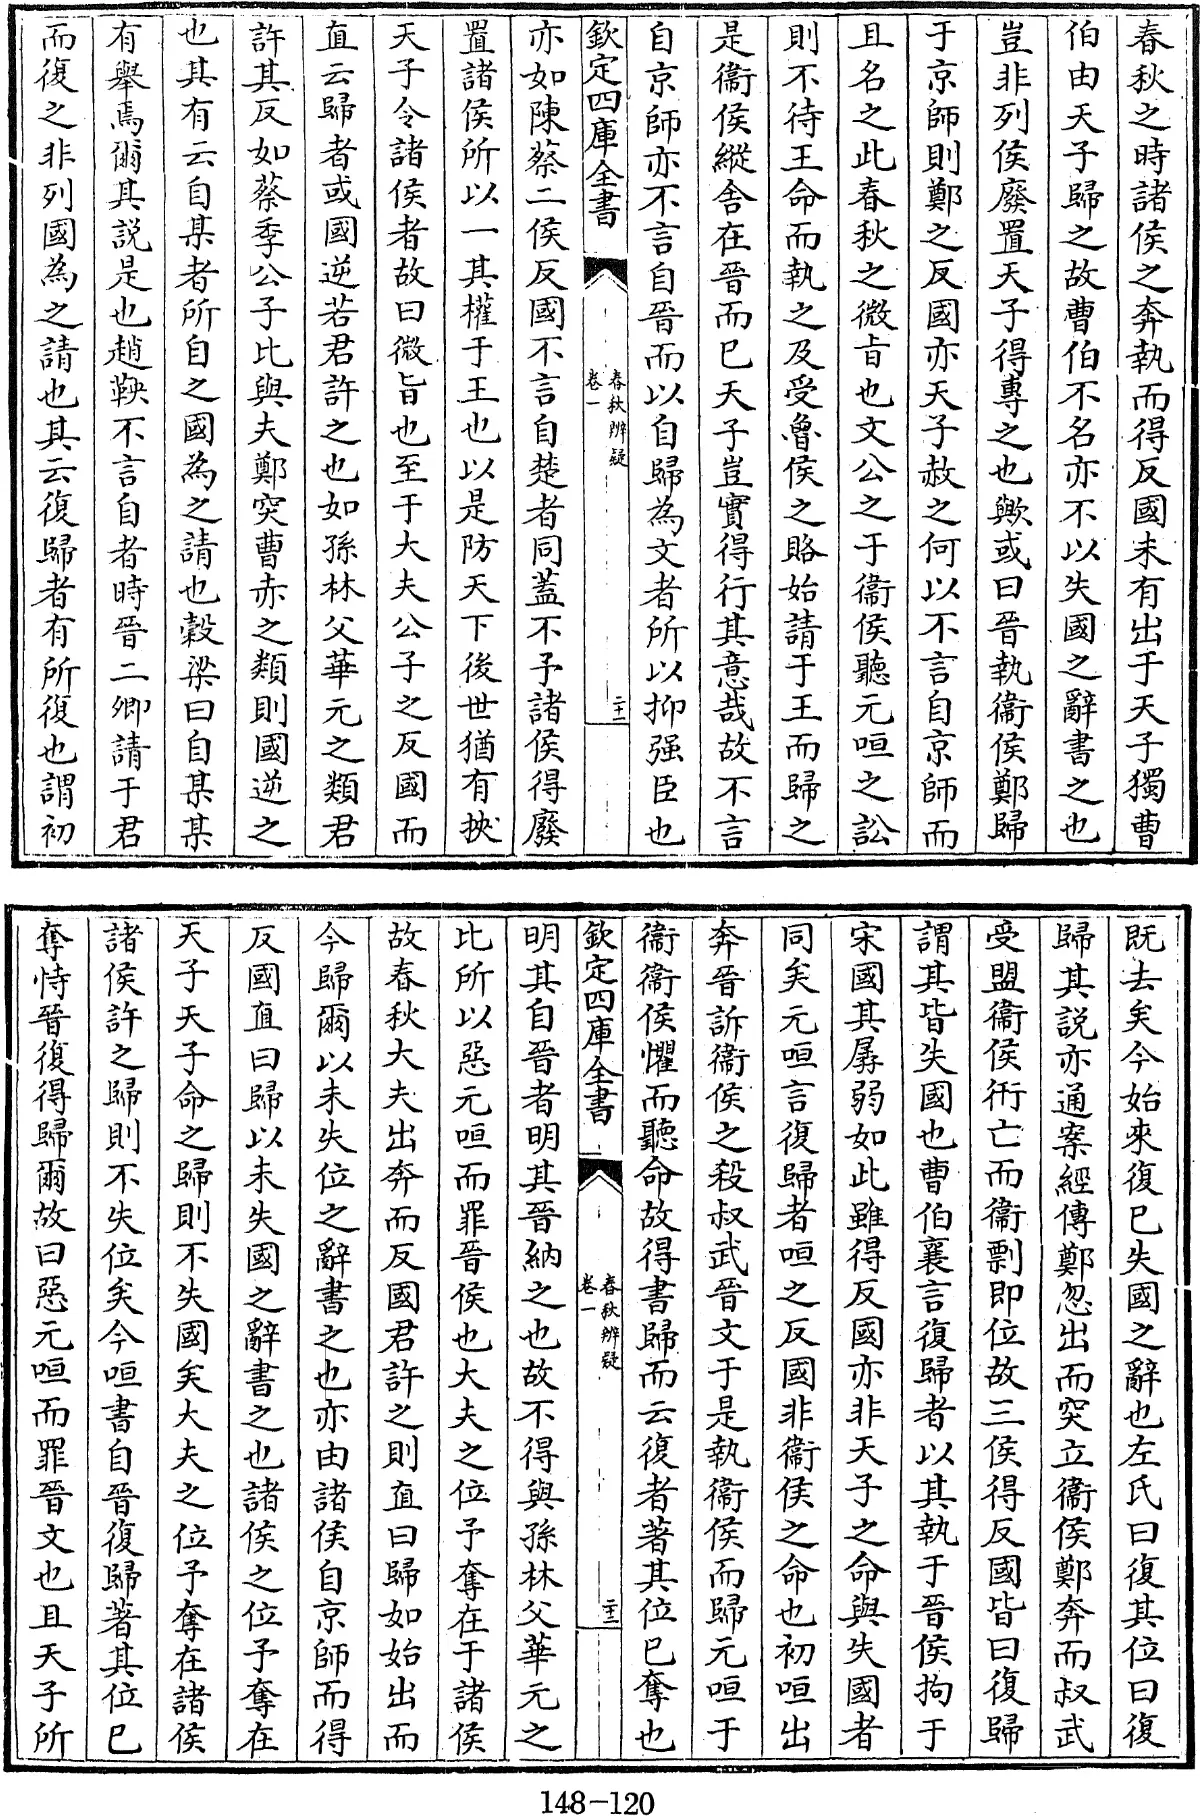 春秋之時諸侯之奔執而得反國未有出于天子獨曹
伯由天子歸之故曹伯不名亦不以失國之辭書之也
豈非列侯廢置天子得專之也歟或曰晉執衞侯鄭歸
于京師則鄭之反國亦天子赦之何以不言自京師而
且名之此春秋之微旨也文公之于衞侯聽元咺之訟
則不待王命而執之及受魯侯之賂始請于王而歸之
是衞侯縱舍在晉而已天子豈實得行其意哉故不言
自京師亦不言自晉而以自歸為文者所以抑强臣也
欽定四庫全書
春秋辨疑
卷一
二十二
亦如陳蔡二侯反國不言自楚者同蓋不予諸侯得廢
置諸侯所以一其權于王也以是防天下後世猶有挾
天子令諸侯者故曰微旨也至于大夫公子之反國而
直云歸者或國逆若君許之也如孫林父華元之類君
許其反如蔡季公子比與夫鄭突曹赤之類則國逆之
也其有云自某者所自之國為之請也穀梁曰自某某
有舉焉爾其說是也趙鞅不言自者時晉二卿請于君
而復之非列國為之請也其云復歸者有所復也謂初
既去矣今始來復已失國之辭也左氏曰復其位曰復
歸其說亦通案經傳鄭忽出而突立衞侯鄭奔而叔武
受盟衞侯衎亡而衞剽即位故三侯得反國皆曰復歸
謂其皆失國也曹伯襄言復歸者以其執于晉侯拘于
宋國其孱弱如此雖得反國亦非天子之命與失國者
同矣元咺言復歸者咺之反國非衞侯之命也初咺出
奔晉訴衞侯之殺叔武晉文于是執衞侯而歸元咺于
衞衞侯懼而聽命故得書歸而云復者著其位已奪也
欽定四庫全書
春秋辨疑
卷一
二十三
明其自晉者明其晉納之也故不得與孫林父華元之
比所以惡元咺而罪晉侯也大夫之位予奪在于諸侯
故春秋大夫出奔而反國君許之則直曰歸如始出而
今歸爾以未失位之辭書之也亦由諸侯自京師而得
反國直曰歸以未失國之辭書之也諸侯之位予奪在
天子天子命之歸則不失國矣大夫之位予奪在諸侯
諸侯許之歸則不失位矣今咺書自晉復歸著其位已
奪恃晉復得歸爾故曰惡元咺而罪晉文也且天子所
148-120